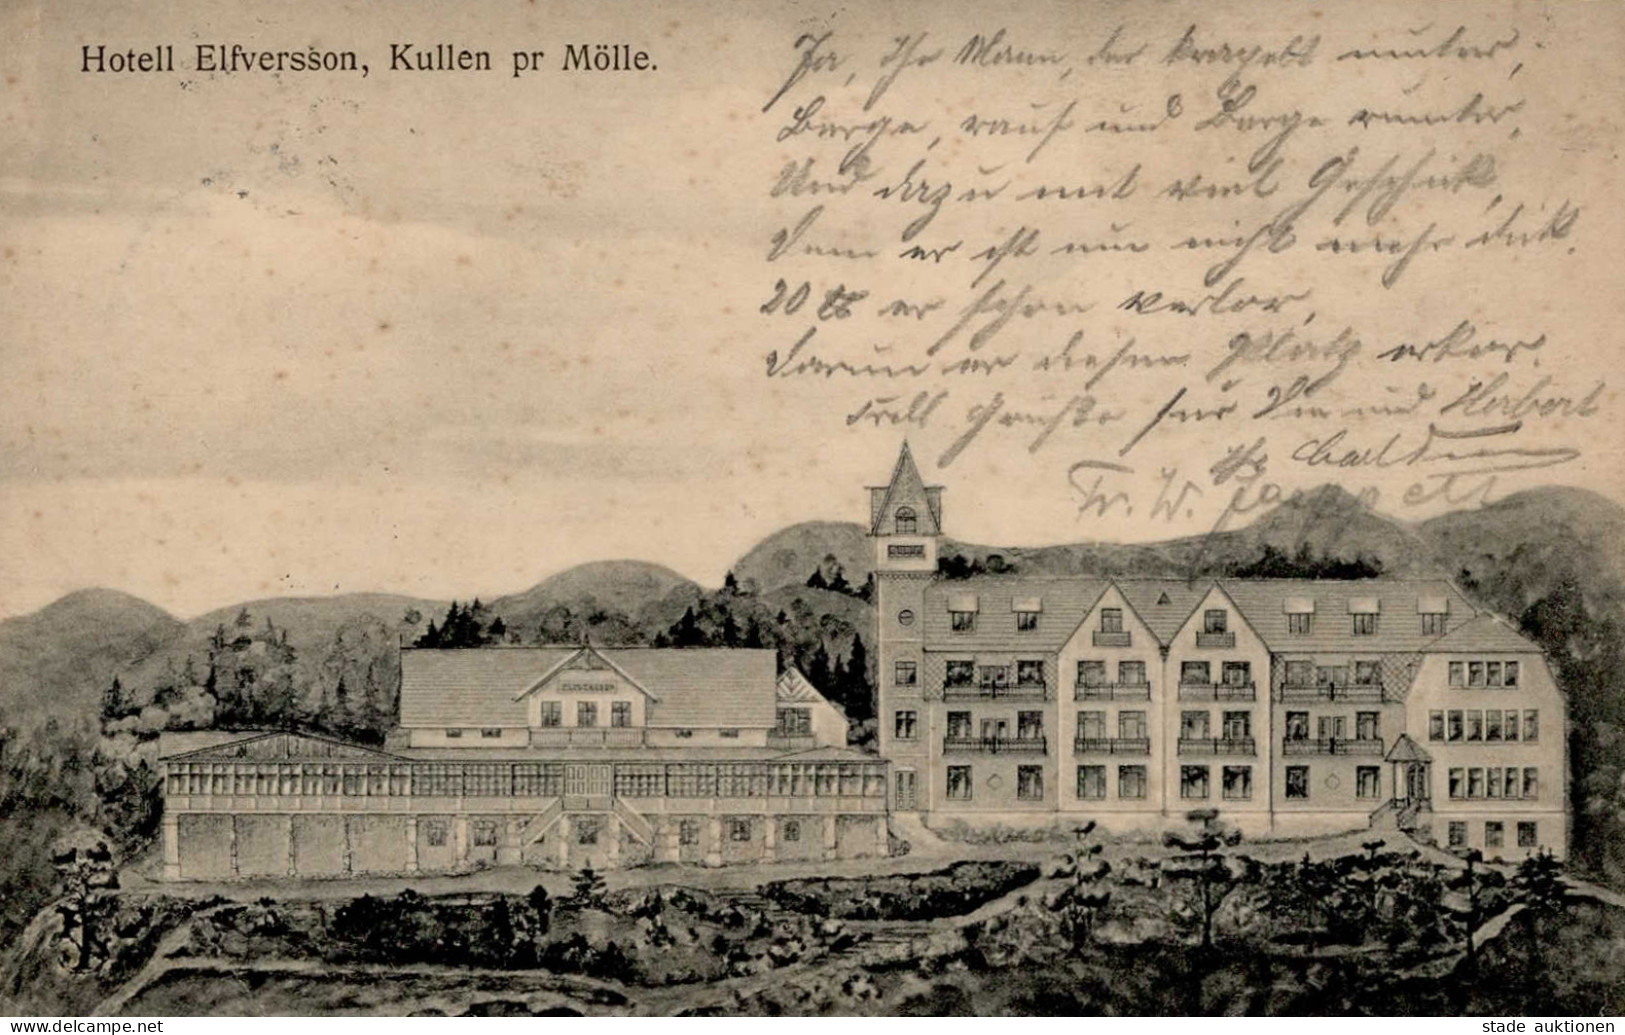 Hotell Elfversson, Kullen pr Mölle.
Ja, Ihr Mann, der krapelt munter,
Berge rauf und Berge runter,
Und dazu mit viel Geschick,
Denn er ist nun nicht mehr dick.
20 ℔ er schon verlor,
Darum er diesen Platz erkor.
Grüße für Sie und Herbert
Ihr Carl
Fr. W.
ELFVERSSON
stade auktionen
www.delcampe.net